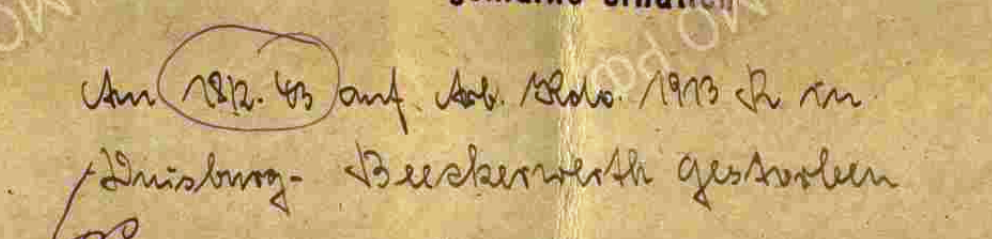 Am 18/2. 43 auf Arb. Kdo. 1913 R in
Duisburg- Beeckerwerth gestorben